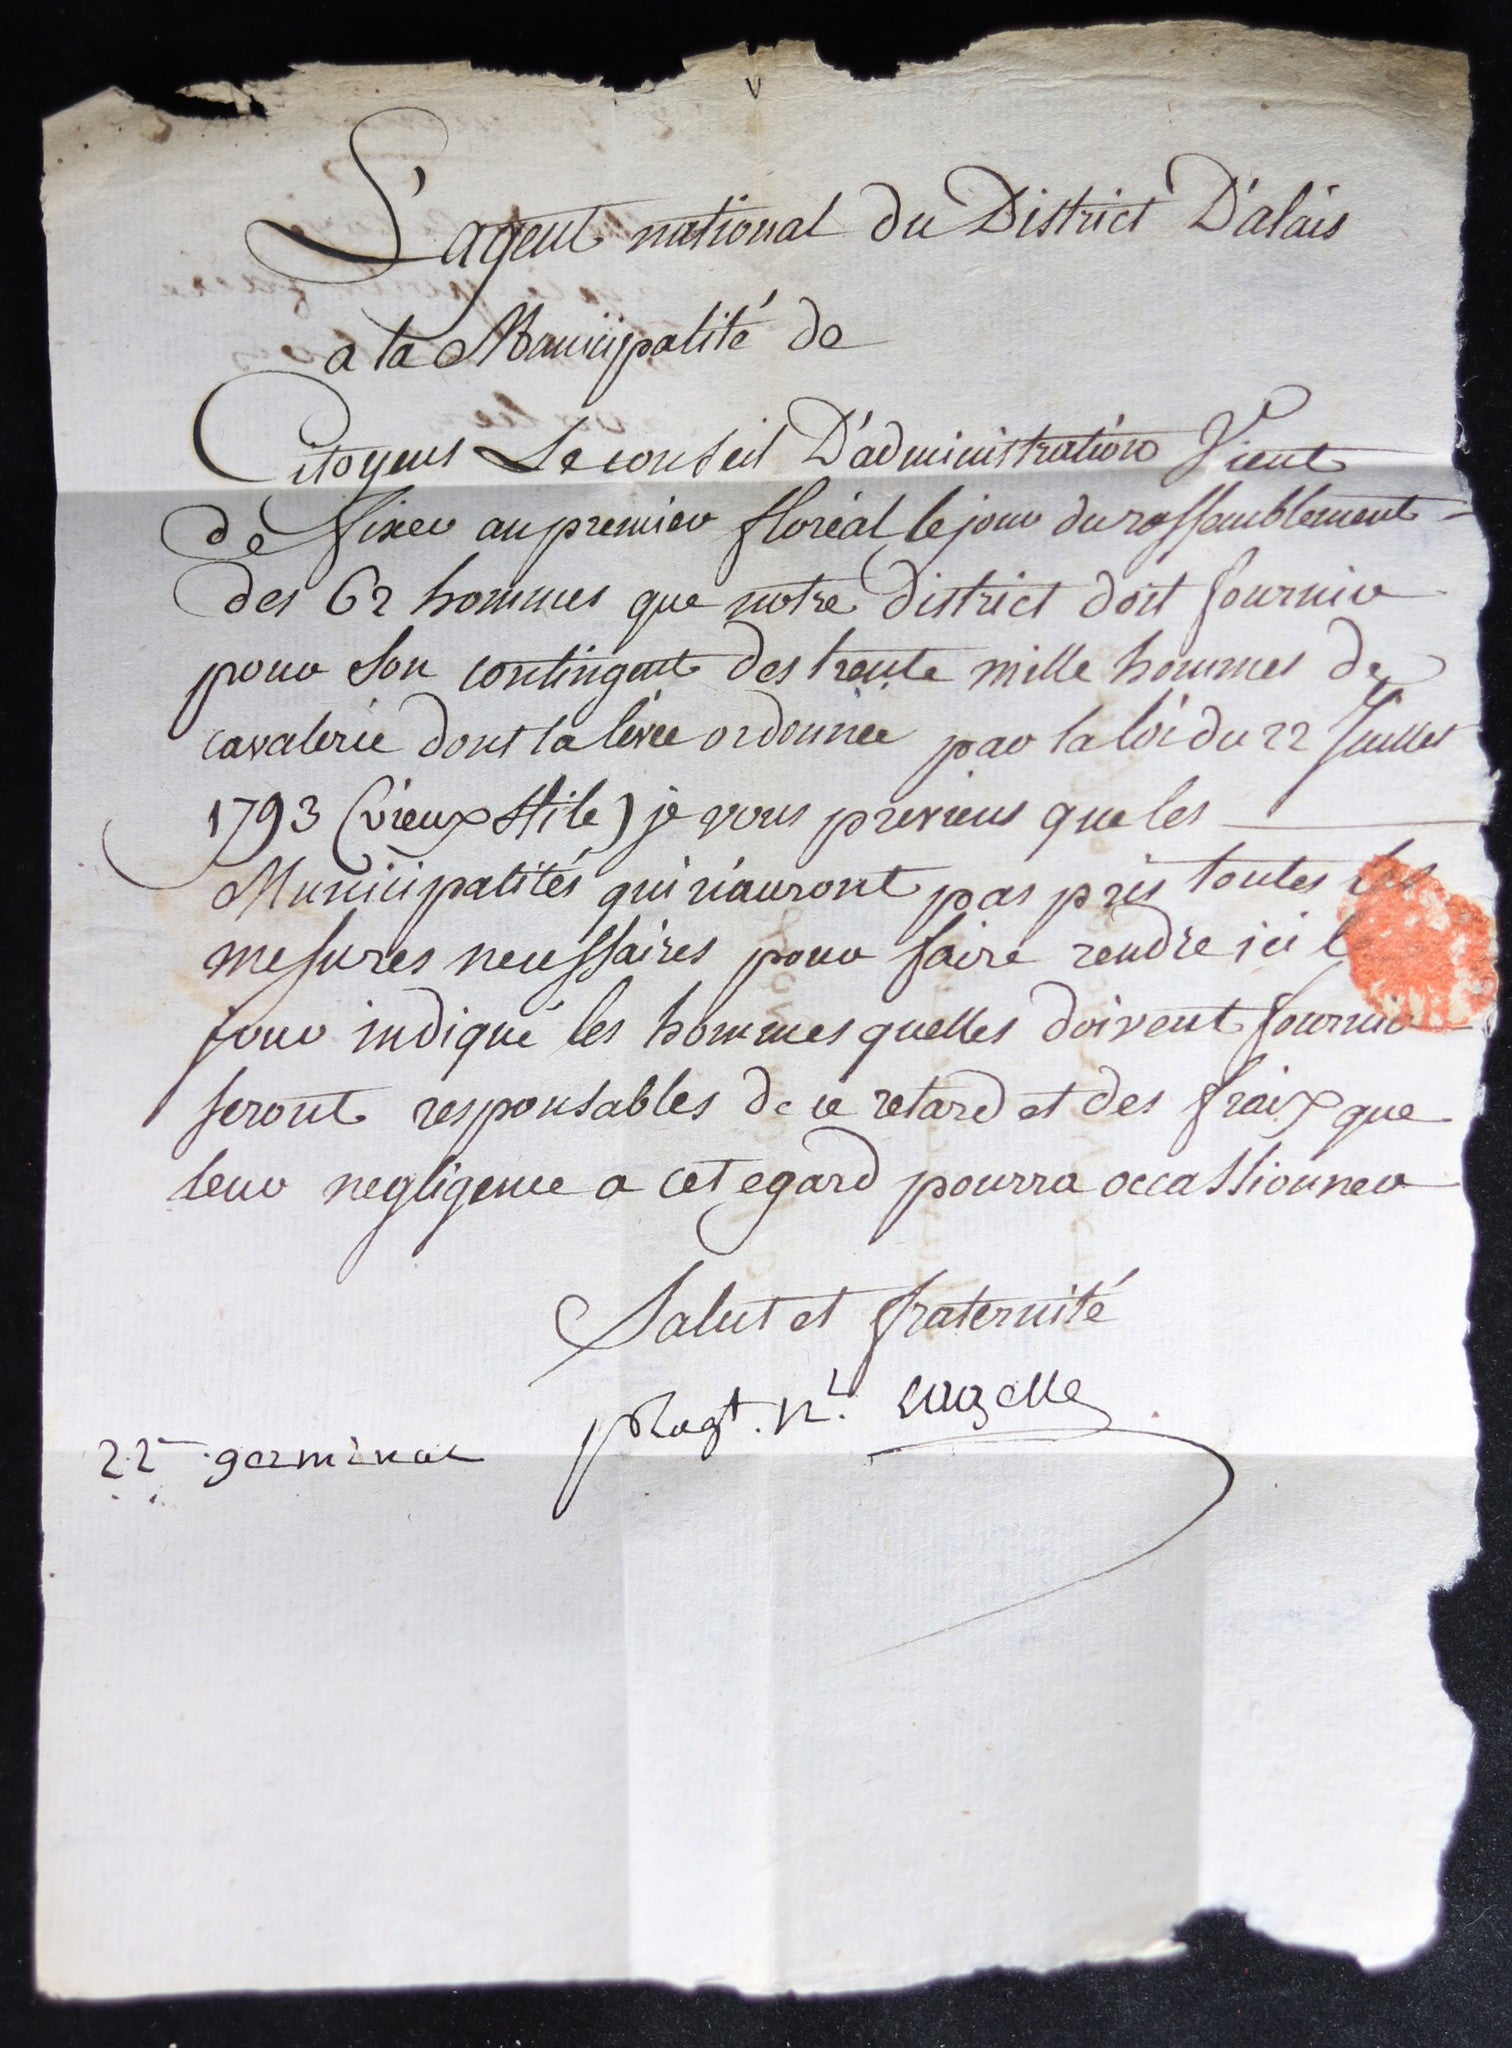 L'agent national du District D'alais
a la Municipalité de
Citoyens Le conseil D'administration Vient
de fixer au premier floréal le jour du rassemblement
des 62 hommes que notre District doit fournir
pour son contingent des trente mille hommes de
cavalerie dont la levée ordonnée par la loi du 22 Juillet
1793 (vieux stile) je vous previens que les
Municipalités qui n'auront pas pris toutes les
mesures necessaires pour faire rendre ici le
jour indiqué les hommes quelles doivent fournir
seront responsables de ce retard et des fraix que
leur negligence a cet egard pourra occassionner
Salut et fraternité
22 germinal